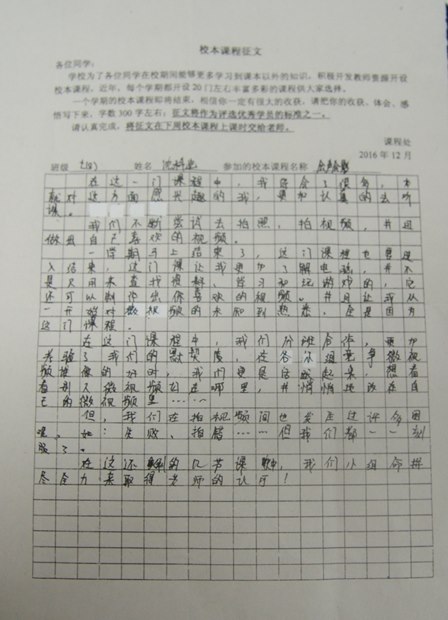 校本课程征文
各位同学:
学校为了各位同学在校期间能够更多学习到课本以外的知识,积极开发教师资源开设
校本课程。近年,每个学期都开设20门左右丰富多彩的课程供大家选择。
一个学期的校本课程即将结束,相信你一定有很大的收获,请把你的收获、体会、感
悟写下来,字数300字左右;征文将作为评选优秀学员的标准之一。
请认真完成,将征文在下周校本课程上课时交给老师。
课程处
2016年12月
班级 姓名 参加的校本课程名称
在这一门课程中,我学会了很多,本
就对这方面感兴趣的我,更加认真的去听
课。
我们不断尝试去拍照,拍视频,并且
做出自己喜欢的视频。
一学期马上结束了,这门课程也要进
入结束,这门课让我更加了解电脑,并不
是只用来查找资料,学习和玩游戏的,它
还可以制作出你喜欢的视频。并且让我从
一开始对微视频的未知到熟悉,全是因为
这门课程。
在这门课程中,我们分班合作,更加
考验了我们的默契度,在各个组竞争微视
频拍摄的时,我们更是
看别人微视频在哪里,并悄悄地放在自
己的微视频里……
但,我们在拍视频间也发生过许多困
难。如:失败、拍错……但我们都一一刻
服了。
在这还剩的几节课中,我们小组会拼
尽全力来取得老师的认可!